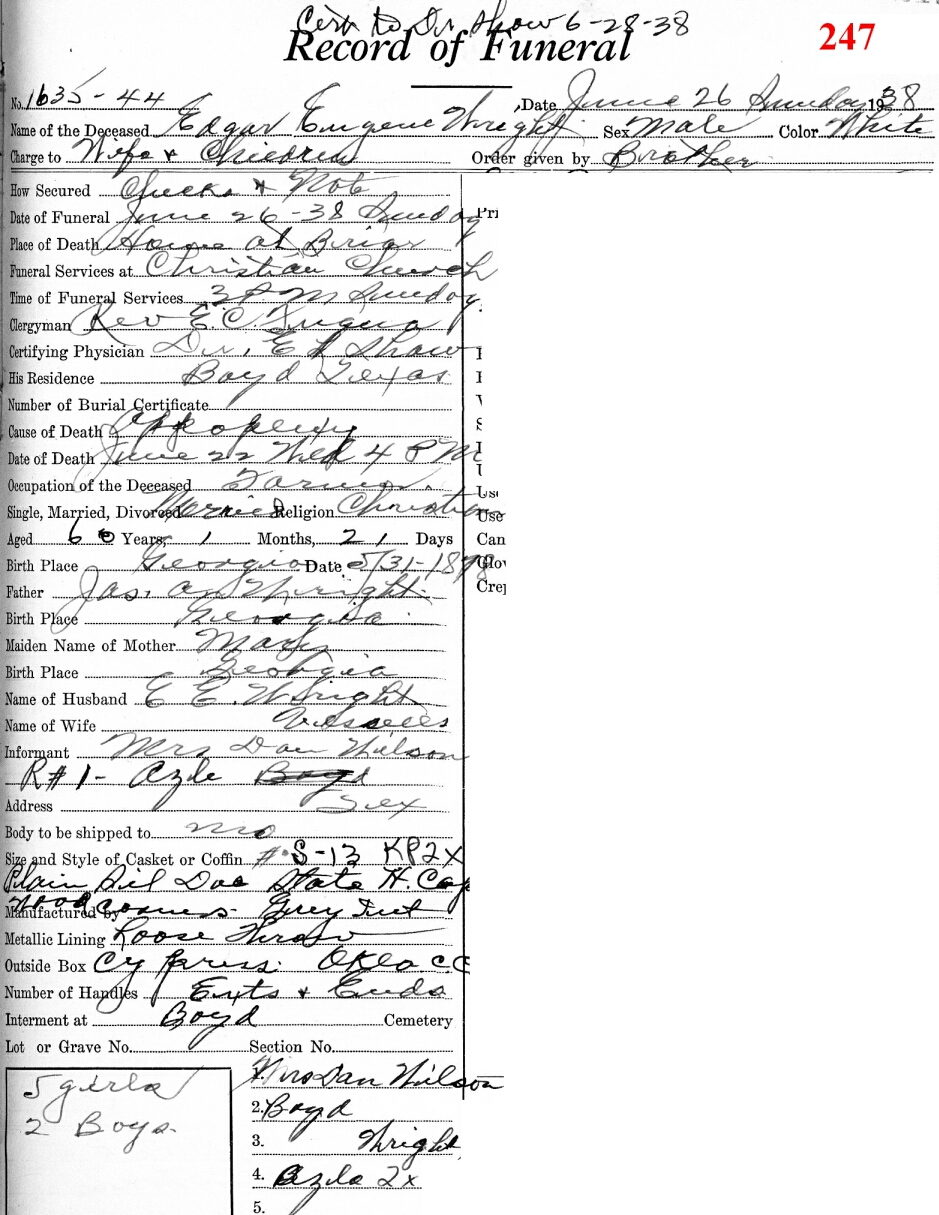 Cert to Dr. Shaw 6-28-38
Record of Funeral
247
No. 1635-44 Date June 26 Sunday 1938
Name of the Deceased Edgar Eugene Wright Sex Male Color White
Charge to Wife + Children Order given by Brother
How Secured Checks + Note
Date of Funeral June 26-38 Sunday
Pri
Place of Death Home at Briar
Funeral Services at Christian Church
Time of Funeral Services 3 P M Sunday
Clergyman Rev E.C. Fuqua
Certifying Physician Dr. E L Shaw
His Residence Boyd Texas
Number of Burial Certificate
Cause of Death Appoplexy
Date of Death June 22 Wed 4 P M
Occupation of the Deceased Farmer
Use
Single, Married, Divorced Married Religion Christian
Use
Aged 60 Years, 1 Months, 21 Days
Can
Birth Place Georgia Date 5/31-1878
Glov
Father Jas. Wright
Crep
Birth Place Georgia
Maiden Name of Mother Mary
Birth Place Georgia
Name of Husband E E. Wright
Name of Wife
Informant Mrs Dan Wilson
R#1- Azle Boyd
Address Tex
Body to be shipped to no
Size and Style of Casket or Coffin # S-13 KP2X
Plain Sil Doe State H. Cap
Manufactured by Wood Corners Grey Int
Metallic Lining Loose Throw
Outside Box Cypress. Okla C.C
Number of Handles Exts + Ends
Interment at Boyd Cemetery
Lot or Grave No. Section No.
5 girls
2 Boys
1. Mrs Dan Wilson
2. Boyd
3. Wright
4. Azle 2x
5.